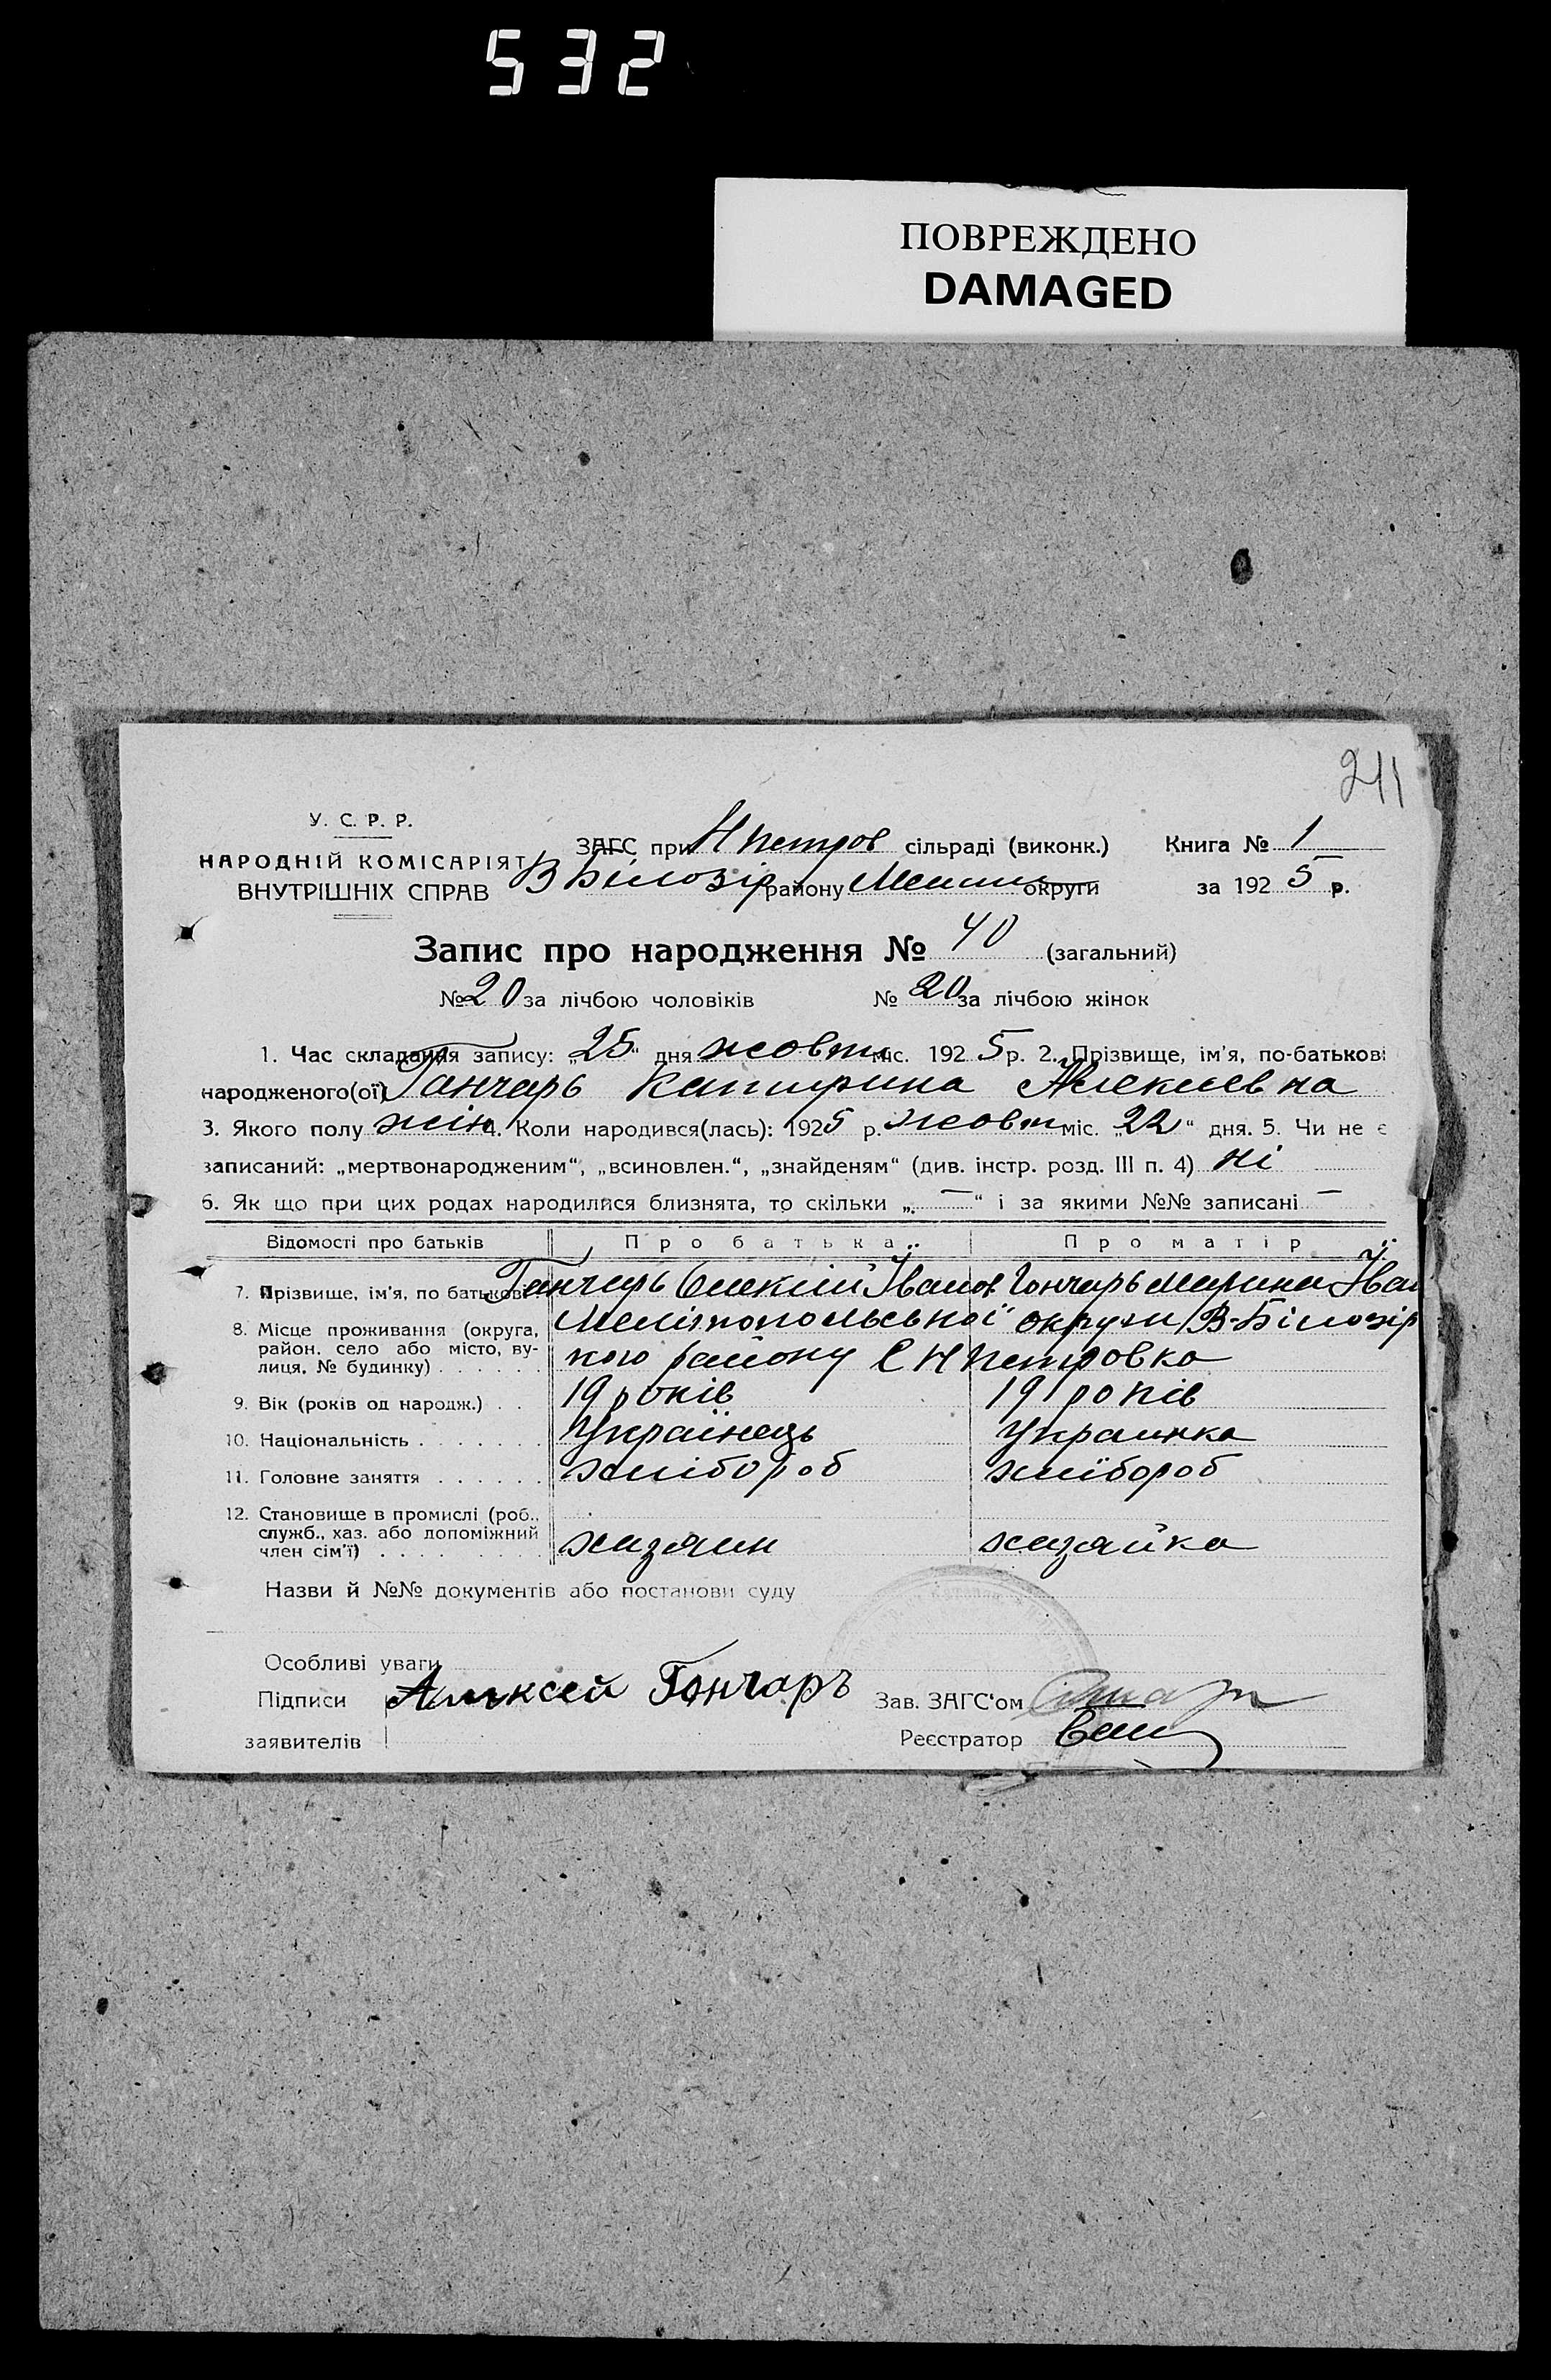 532
ПОВРЕЖДЕНО
DAMAGED
211
У. С. Р. Р.
НАРОДНІЙ КОМІСАРІЯТ
ВНУТРІШНІХ СПРАВ
ЗАГС при Н Петров сільраді (виконк.) Книга № 1
В Білозір району Мелит округи за 1925 р.
Запис про народження № 40 (загальний)
№ 20 за лічбою чоловіків № 20 за лічбою жінок
1. Час складання запису: „25“ дня жовтн міс. 1925 р. 2. Прізвище, ім'я, по-батькові
народженого(ої) Ганчарь Катирина Алексиевна
3. Якого полу жін 4. Коли народився(лась): 1925 р. жовтн міс. „22“ дня. 5. Чи не є
записаний: „мертвонародженим“, „всиновлен.“, „знайденям“ (див. інстр. розд. III п. 4) ні
6. Як що при цих родах народилися близнята, то скільки „—“ і за якими №№ записані —
Відомості про батьків Про батька Про матір
7. Прізвище, ім'я, по батькові Ганчарь Олексій Іванов Гончарь Марина Іван
8. Місце проживання (округа, район, село або місто, вулиця, № будинку) Мелітопольської округи В-Білозір
кого району С Н Петровка
9. Вік (років од народж.) 19 років 19 років
10. Національність Українець Украинка
11. Головне заняття хлібороб хлібороб
12. Становище в промислі (роб., служб., хаз. або допоміжний член сім'ї) хазяин хазяйка
Назви й №№ документів або постанови суду
Особливі уваги
Підписи Алексей Гончаръ Зав. ЗАГС'ом
заявителів Реєстратор